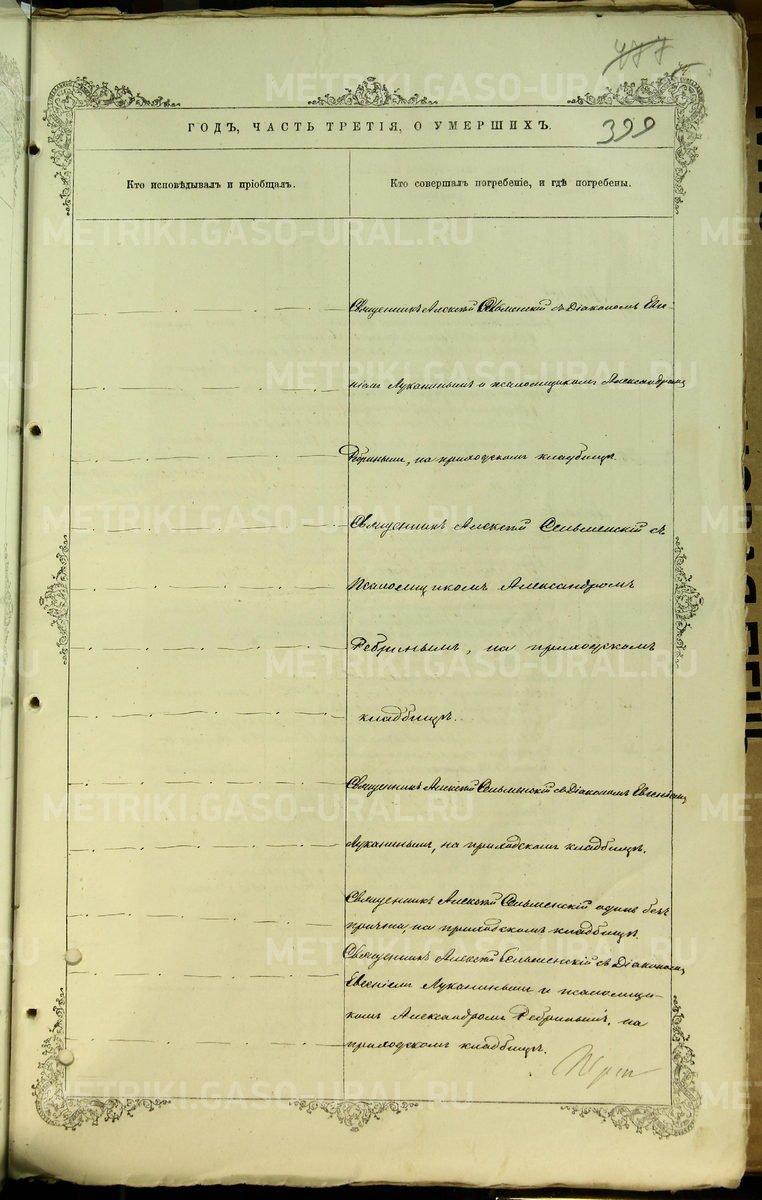 477
ГОДЪ, ЧАСТЬ ТРЕТІЯ, О УМЕРШИХЪ.
399
Кто исповѣдывалъ и пріобщалъ.
Кто совершалъ погребеніе, и гдѣ погребены.
Священникъ Алексѣй Сельменскій съ Діакономъ Евге-
ніемъ Луканинымъ и псаломщикомъ Александромъ
Ребринымъ, на приходскомъ кладбищѣ.
Священникъ Алексѣй Сельменскій съ
Псаломщикомъ Александромъ
Ребринымъ, на приходскомъ
кладбищѣ.
Священникъ Алексѣй Сельменскій съ Діакономъ Евгеніемъ
Луканинымъ, на приходскомъ кладбищѣ.
Священникъ Алексѣй Сельменскій одинъ безъ
причта, на приходскомъ кладбищѣ.
Священникъ Алексѣй Сельменскій съ Діакономъ
Евгеніемъ Луканинымъ и псаломщи-
комъ Александромъ Ребринымъ, на
приходскомъ кладбищѣ.
METRIKI.GASO-URAL.RU